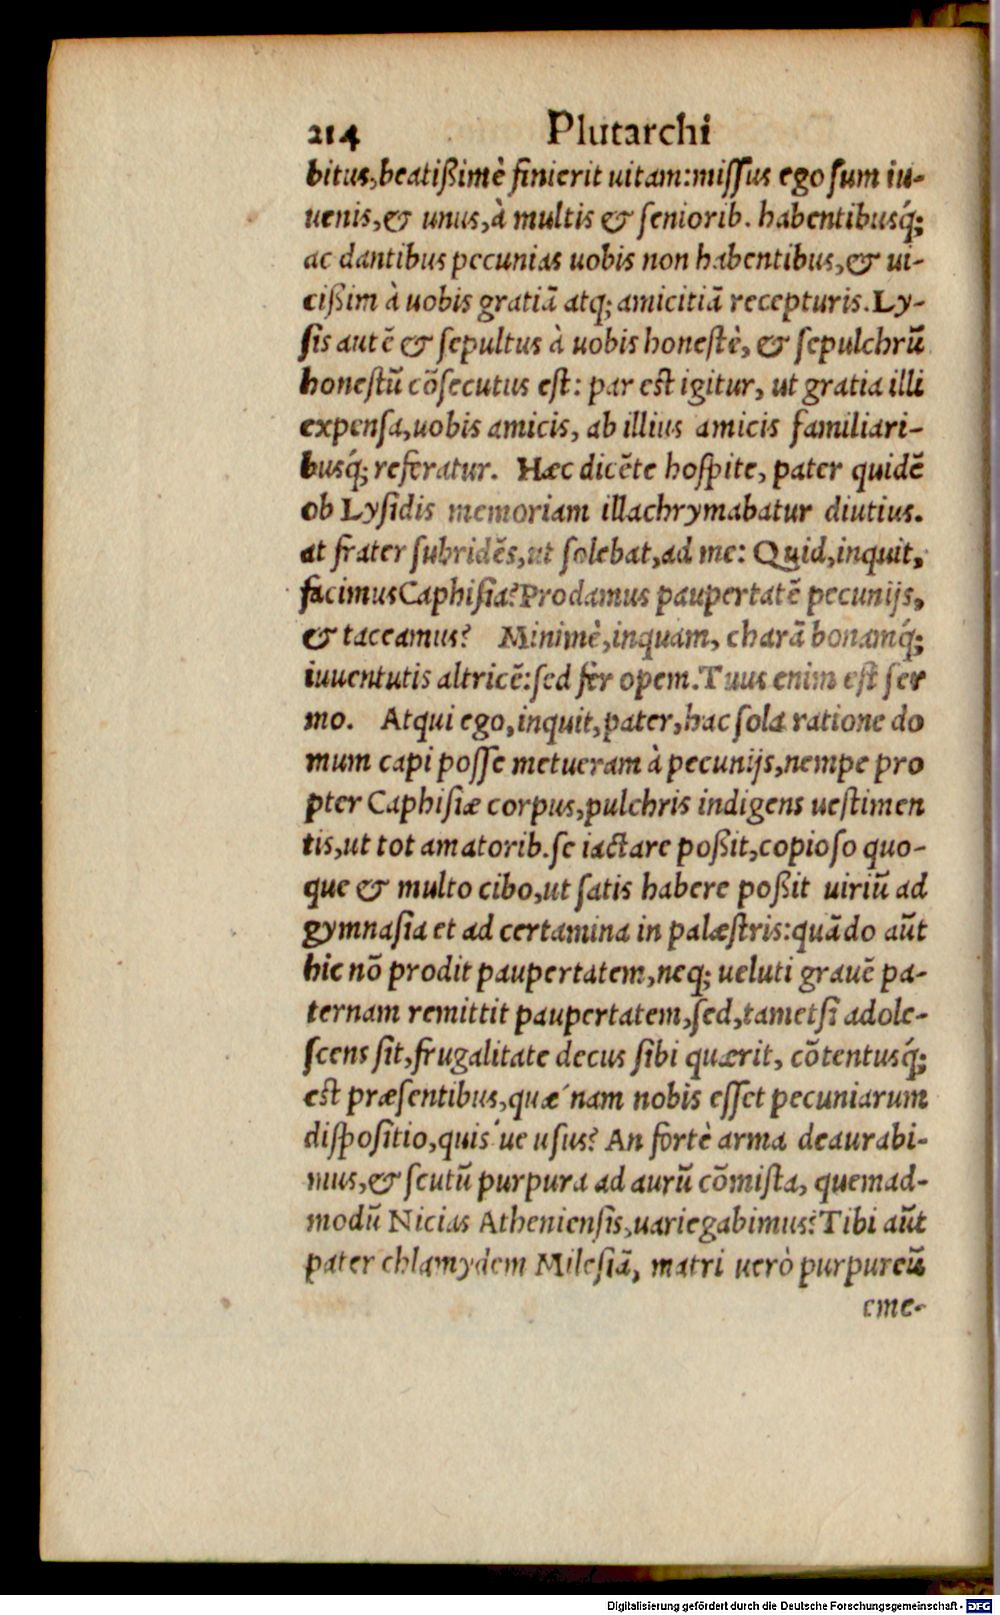 214 Plutarchi
bitus,beatißimè finierit uitam:missus ego sum iu-
uenis,& unus,à multis & seniorib. habentibusq́;
ac dantibus pecunias uobis non habentibus,& ui-
cißim à uobis gratiã atq; amicitiã recepturis.Ly-
sis autẽ & sepultus à uobis honestè, & sepulchrũ
honestũ cõsecutus est: par est igitur, ut gratia illi
expensa,uobis amicis, ab illius amicis familiari-
busq́; referatur. Hæc dicẽte hospite, pater quidẽ
ob Lysidis memoriam illachrymabatur diutius.
at frater subridẽs,ut solebat,ad me: Quid,inquit,
facimus Caphisia? Prodamus paupertatẽ pecunijs,
& taceamus? Minimè,inquam, charã bonamq́;
iuuentutis altricẽ:sed fer opem.Tuus enim est ser
mo. Atqui ego,inquit,pater,hac sola ratione do
mum capi posse metueram à pecunijs,nempe pro
pter Caphisiæ corpus,pulchris indigens uestimen
tis,ut tot amatorib.se iactare poßit,copioso quo-
que & multo cibo,ut satis habere poßit uiriũ ad
gymnasia et ad certamina in palæstris:quãdo aũt
hic nõ prodit paupertatem,neq; ueluti grauẽ pa-
ternam remittit paupertatem,sed,tametsi adole-
scens sit,frugalitate decus sibi quærit, cõtentusq́;
est præsentibus,quæ´nam nobis esset pecuniarum
dispositio,quis´ue usus? An fortè arma deaurabi-
mus,& scutũ purpura ad aurũ cõmista, quemad-
modũ Nicias Atheniensis,uariegabimus? Tibi aũt
pater chlamydem Milesiã, matri uerò purpureũ
eme-
Digitalisierung gefördert durch die Deutsche Forschungsgemeinschaft - DFG